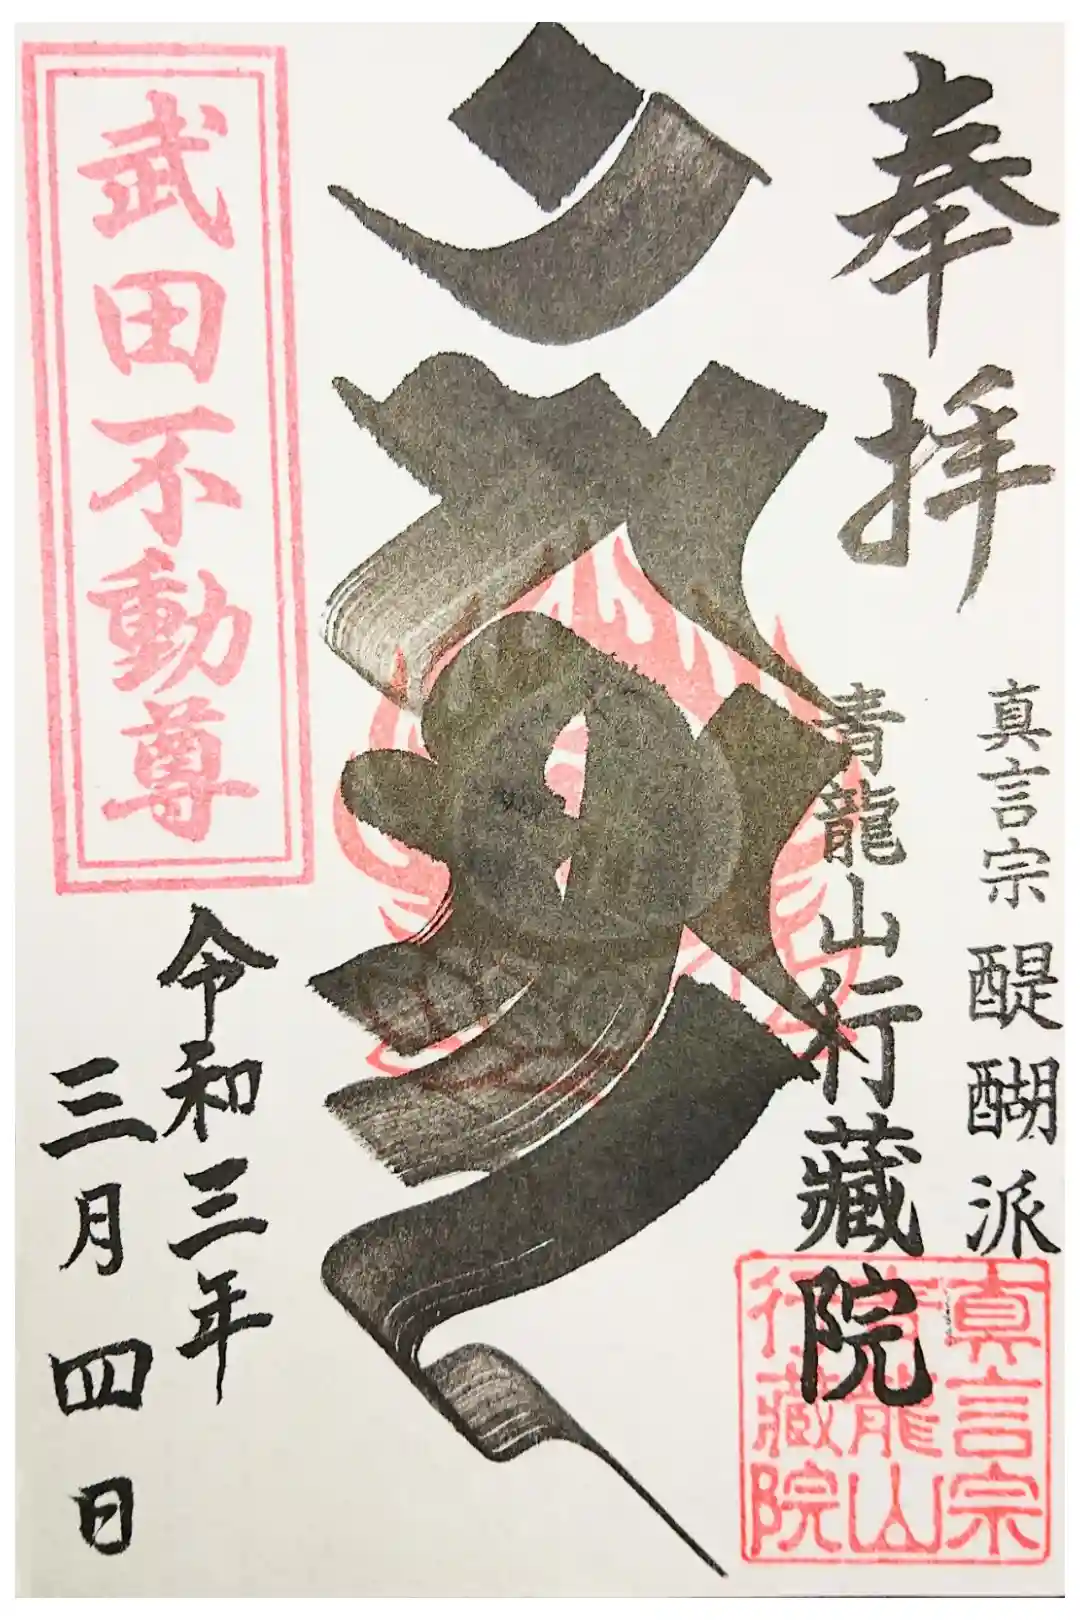 奉拝
真言宗 醍醐派
青龍山行蔵院
真言宗
青龍山
行蔵院
武田不動尊
令和三年
三月四日